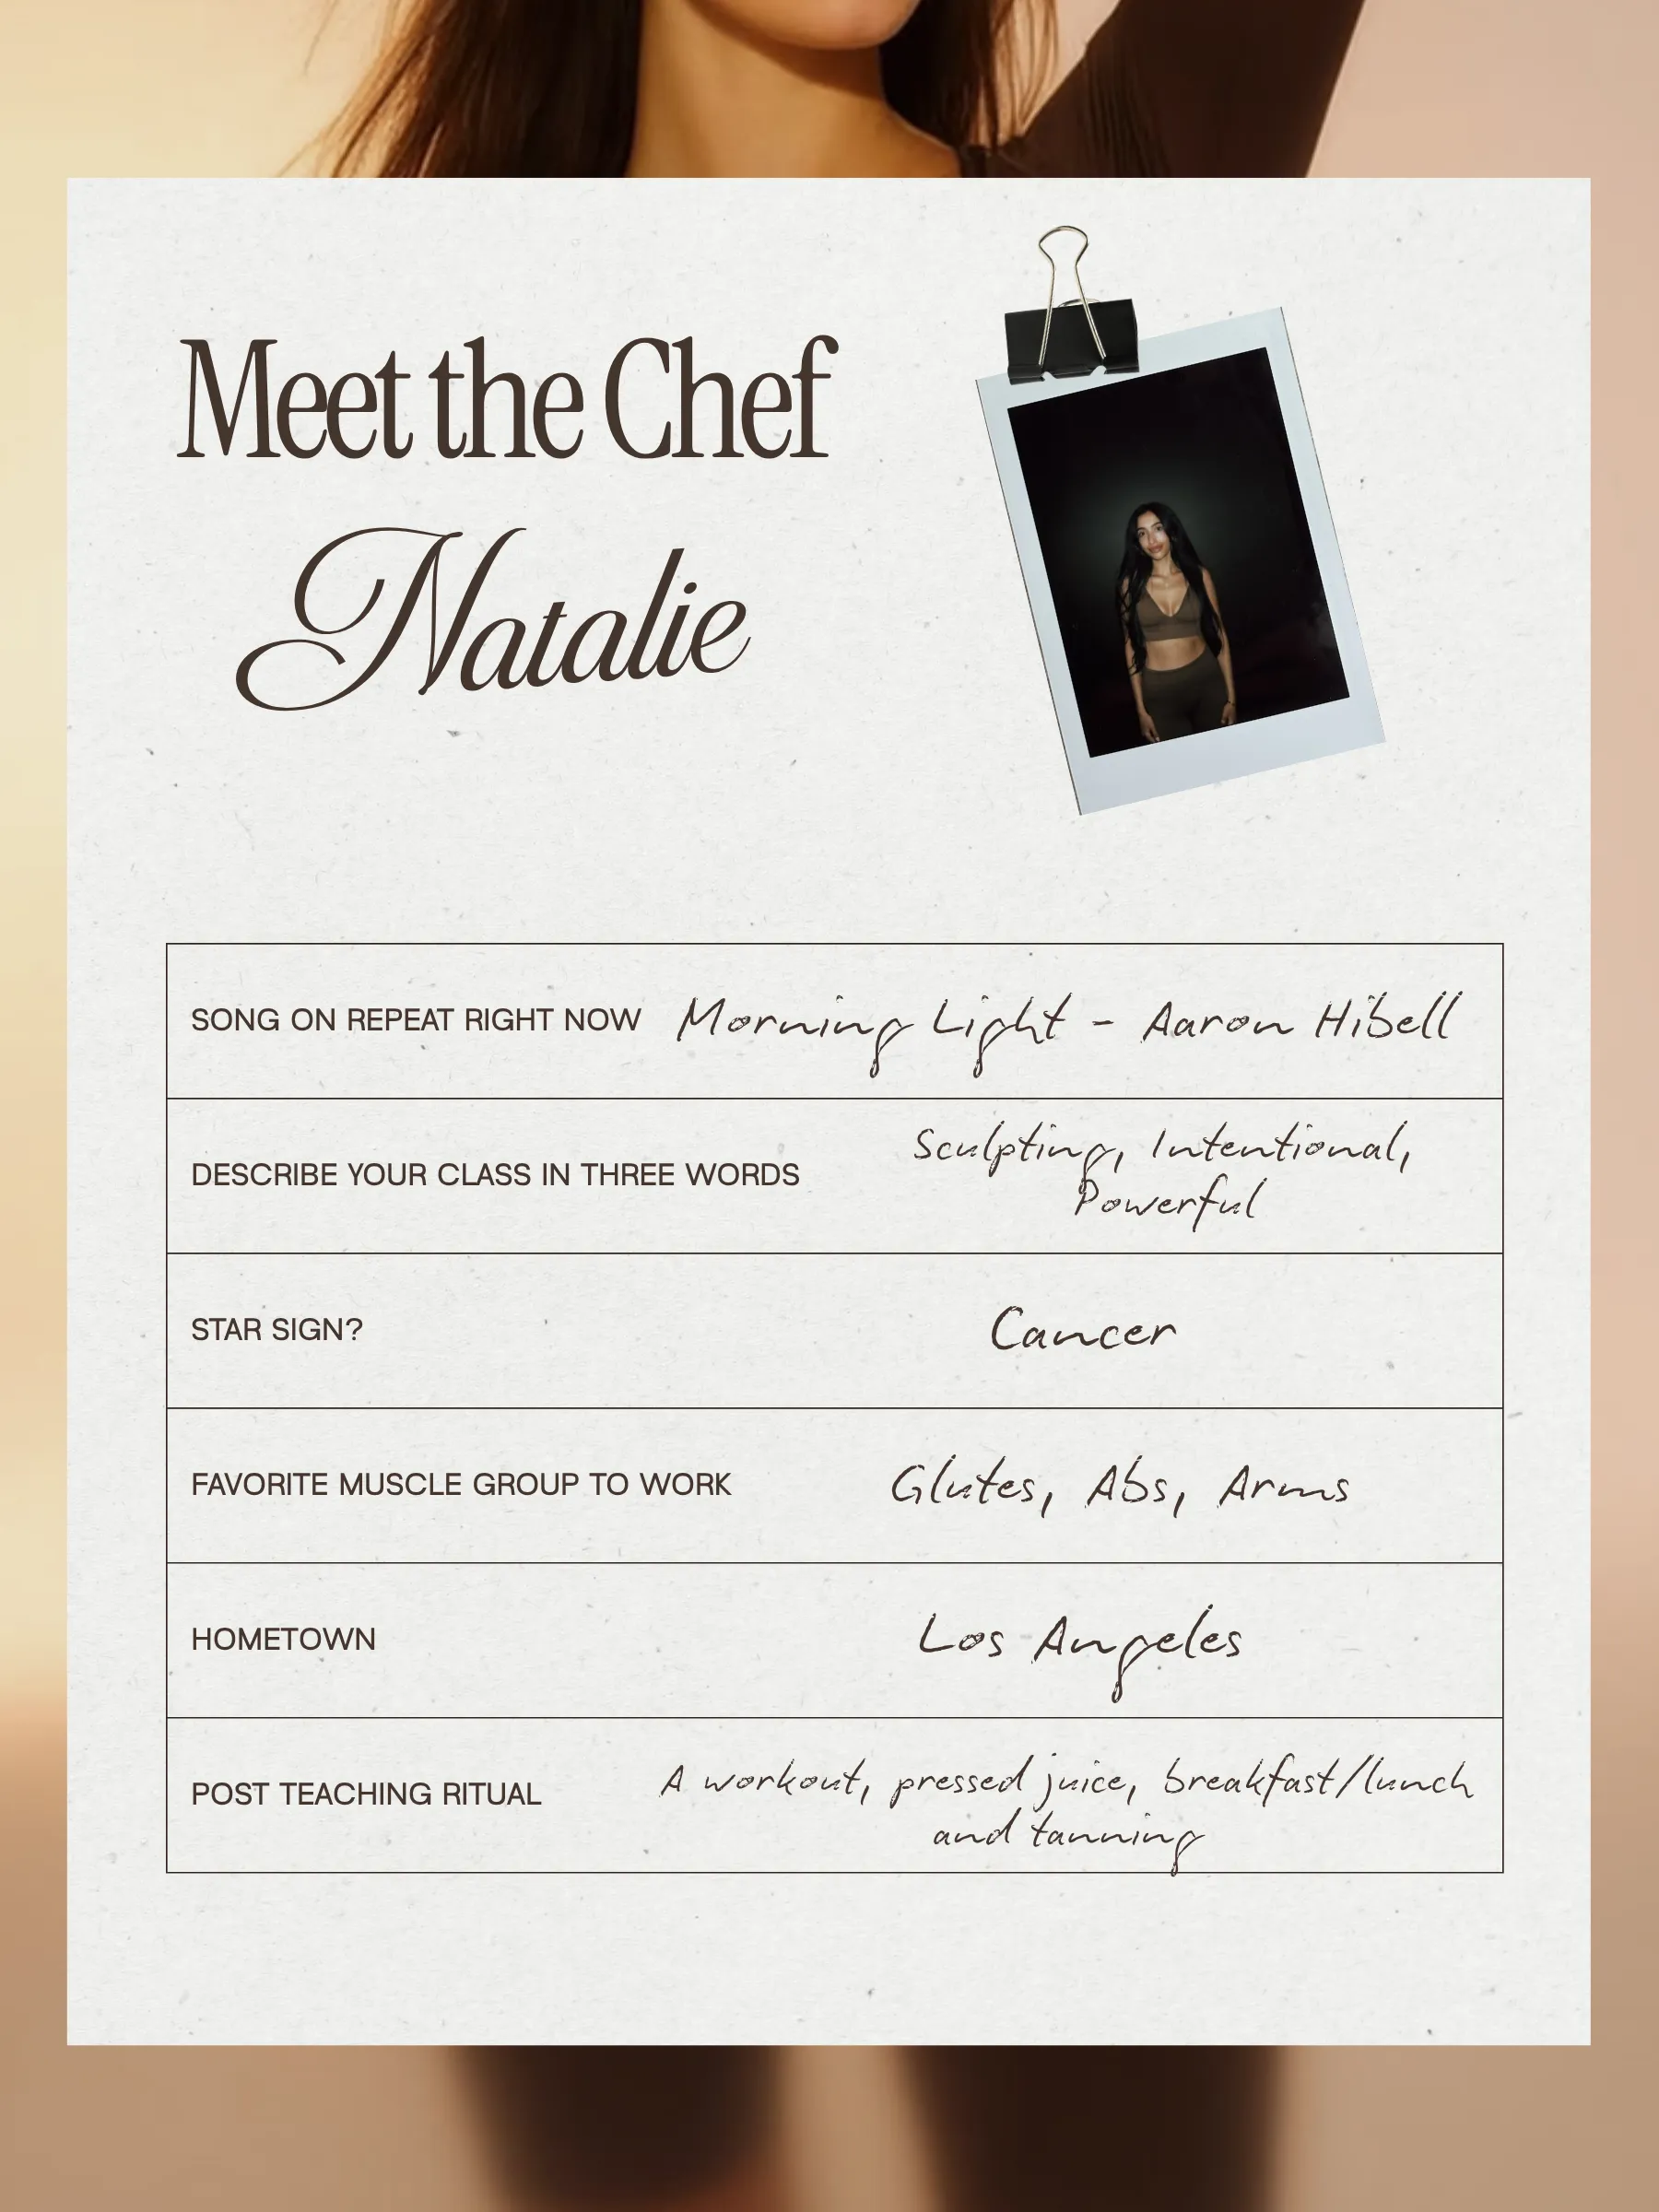 Meet the Chef
Natalie
SONG ON REPEAT RIGHT NOW Morning Light - Aaron Hibell
DESCRIBE YOUR CLASS IN THREE WORDS Sculpting, Intentional,
Powerful
STAR SIGN? Cancer
FAVORITE MUSCLE GROUP TO WORK Glutes, Abs, Arms
HOMETOWN Los Angeles
POST TEACHING RITUAL A workout, pressed juice, breakfast/lunch
and tanning